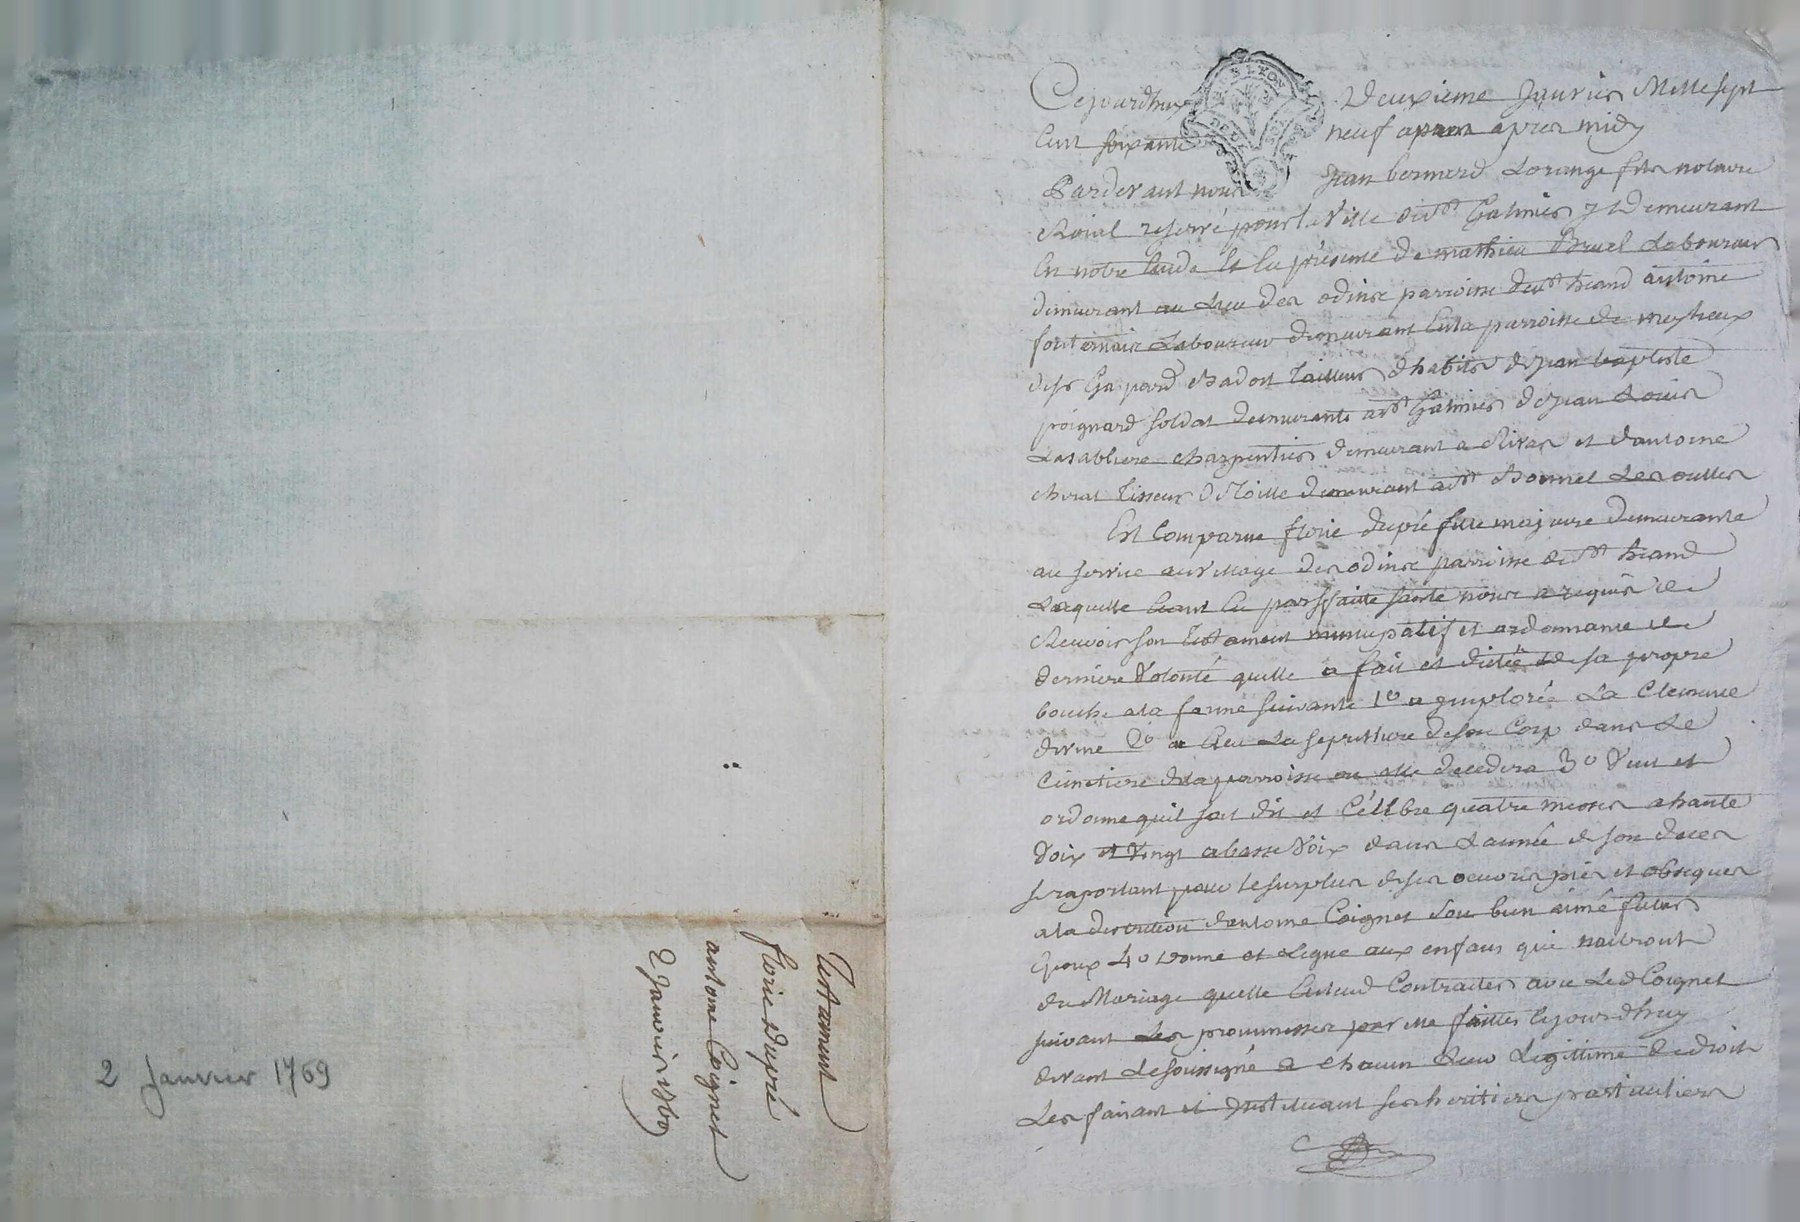 testament
florie dupré
antoine Coignet
2 Janvier 1769
2 Janvier 1769
Cejourdhuy Deuxieme Janvier Mille sept
Cent soixante neuf apres midy
Pardevant nous Jean bernard Lorange fils notaire
Roial reservé pour la Ville de st Galmier y Demeurant
En notre Etude Et En presence de mathieu Bruel Laboureur
demeurant au Lieu des odins parroisse de st heand antoine
Laboureur demeurant En la parroisse de meylieux
de sr Gaspard Tailleur d'habits de jean baptiste
poignard soldat demeurants a st Galmier de jean Louis
Lasabliere charpentier demeurant a Rivas et dantoine
cherat Tisseur de Toille demeurant a st Bonnet Les oulles
Est Comparue florie dupré fille majeure demeurante
au service au village des odins parroisse de st heand
Laquelle Etant En parfaitte santé nous a requis de
Recevoir son testament nuncupatif et ordonnance de
derniere Volonté quelle a fait et dictée de sa propre
bouche a la forme suivante 1o a jmplorée La Clemence
divine 2o a Eleu La sepulture de son Corp dans Le
Cimetiere de la parroisse ou elle decedera 3o Veut et
ordonne quil soit dit et Célébre quatre messes a haute
Voix et Vingt a basse Voix dans L'année de son deces
se raportant pour le surplus de ses oeuvres pies et obseques
a la discretion dantoine Coignet son bien aimé futur
Epoux 4o Donne et Legue aux enfans qui naitront
du Mariage quelle Entend Contracter avec Led Coignet
suivant Les promnesses par elle faittes cejourdhuy
devant Le soussigné a chacun Leur Legittime de droit
Les faisant et jnstituant ses heritiers particuliers